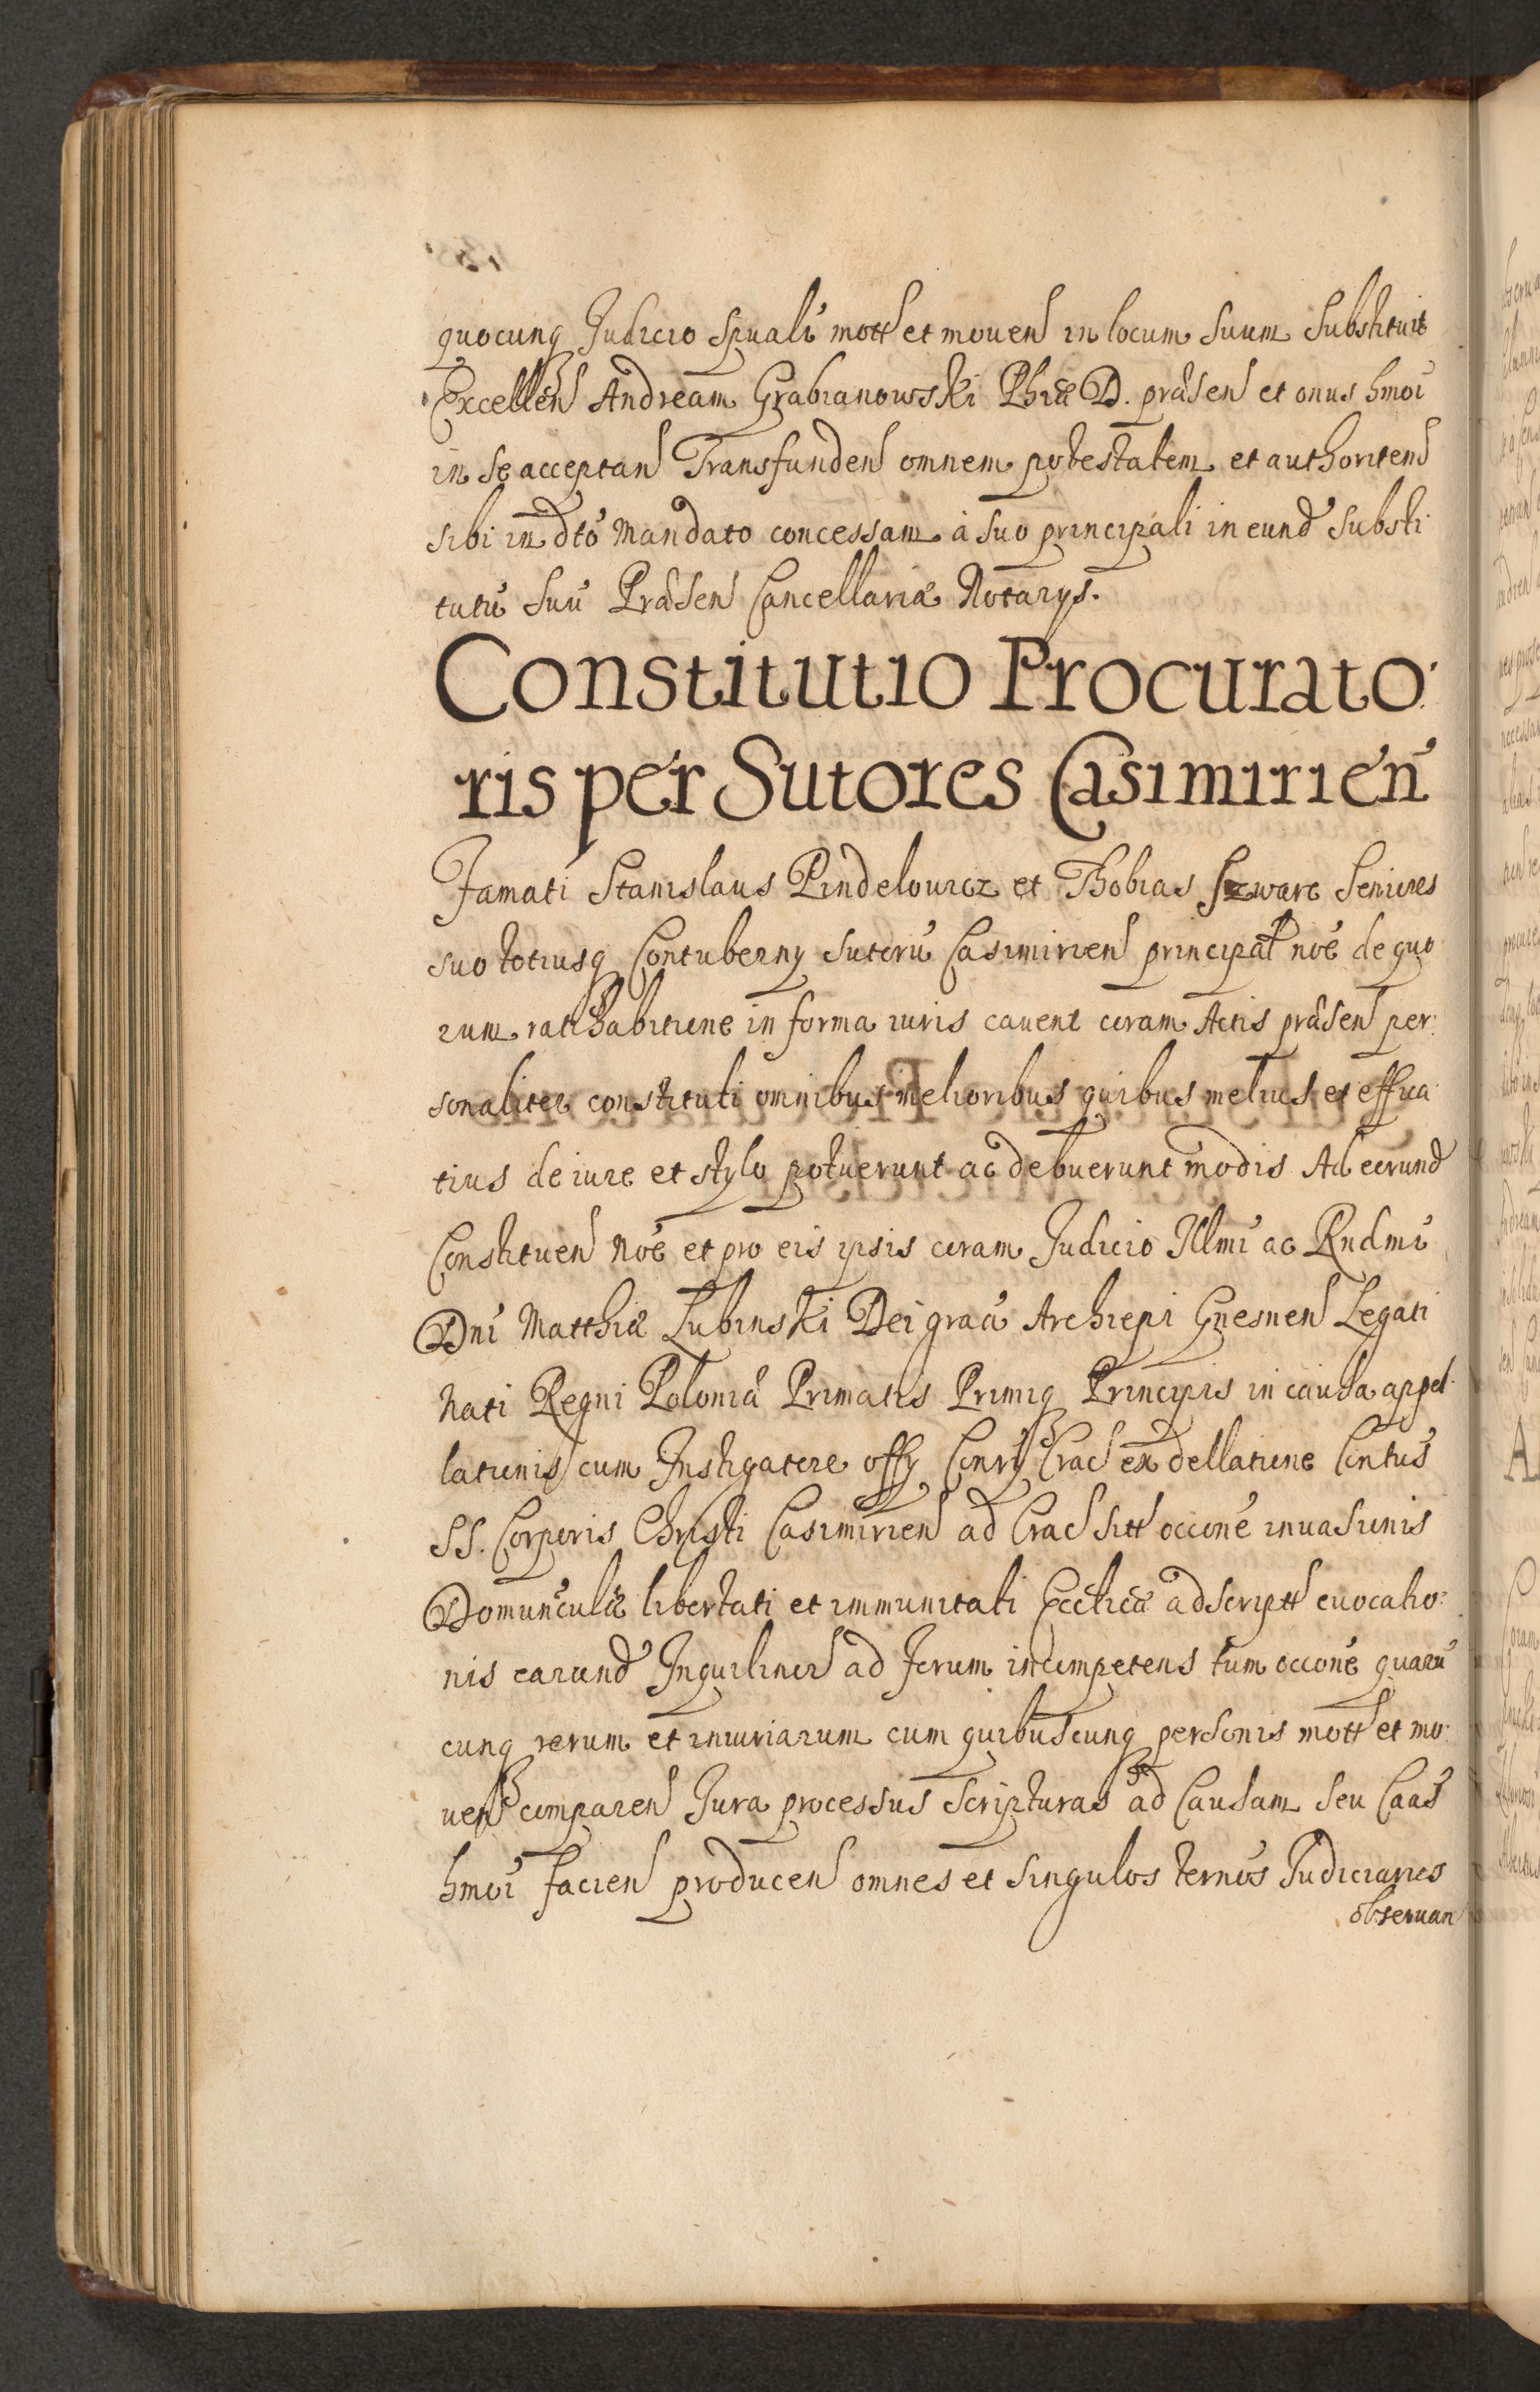 quocunq Judicio Spuali mott et mouen in locum suum substituit
Excellen Andream Grabianowski Phiæ D. præsen et onus hmoi
in se acceptan Transfunden omnem potestatem et authoritem
sibi in dto Mandato concessam à suo principali in eund substi:
tutū suū Præsen Cancellariæ Notarys.
Constitutio Procurato:
ris per Sutores Casimirień
Famati Stanislaus Pindelowicz et Thobias Szwarc Seniores
suo totiusq Contuberny Sutorū Casimirien principal noē de quo
rum ratihabitione in forma iuris cauent coram Actis præsen per:
sonaliter constituti omnibus melioribus quibus melius et effica
tius de iure et stylo potuerunt ac debuerunt modis Ad eorund
Constituen Noē et pro eis ipsis coram Judicio Illmi ac Rndmi
Dni Matthiæ Lubinski Dei graā Archiepi Gnesnen Legati
Nati Regni Poloniæ Primatis Primiq Principis in causa appel:
lationis cum Instigatore offy Consry Crac ex dellatione Contus
SS. Corporis Christi Casimirien ad Crac sitt occone inuasionis
Domunculæ libertati et immunitati Eccticæ adscriptt euocatio:
nis earund Inquilinor ad Forum incompetens tum occone quarū
cunq rerum et iniuriarum cum quibuscunq personis mott et mo:
uen comparen Jura processus scripturas ad Causam seu Caas
hmoi facien producen omnes et singulos ternos Judiciarios
obseruan